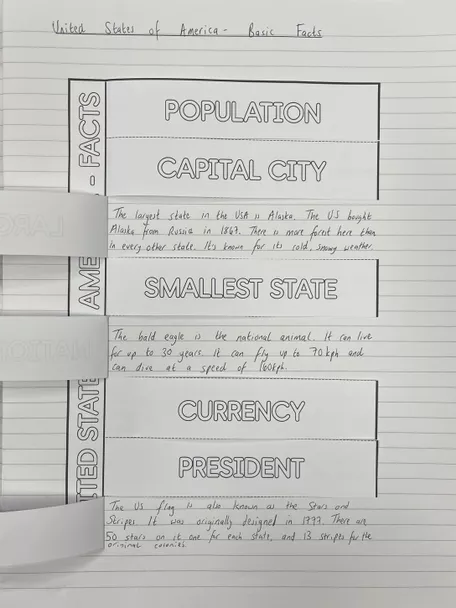 United States of America - Basic Facts
POPULATION
CAPITAL CITY
The largest state in the USA is Alaska. The US bought
Alaska from Russia in 1867. There is more forest here than
in every other state. It's known for its cold, snowy weather.
SMALLEST STATE
The bald eagle is the national animal. It can live
for up to 30 years. It can fly up to 70kph and
can dive at a speed of 160kph.
CURRENCY
PRESIDENT
The US flag is also known as the Stars and
Stripes. It was originally designed in 1777. There are
50 stars on it one for each state, and 13 stripes for the
original colonies.
ITED STATE
AME
- FACTS